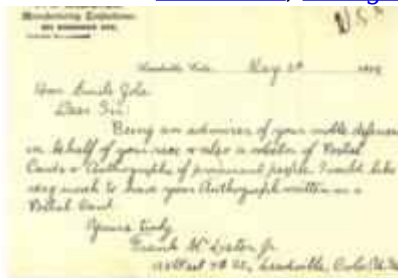 Manufacturing Confectioner.
USA
May
Hon. Emile Zola
Dear Sir:
Being an admirer of your noble defense
in behalf of your race & also a collector of Postal
Cards & Authographs of prominent people I would like
very much to have your Authograph written on a
Postal Card.
Yours truly
Frank
West 7th St., Leadville, Colo.